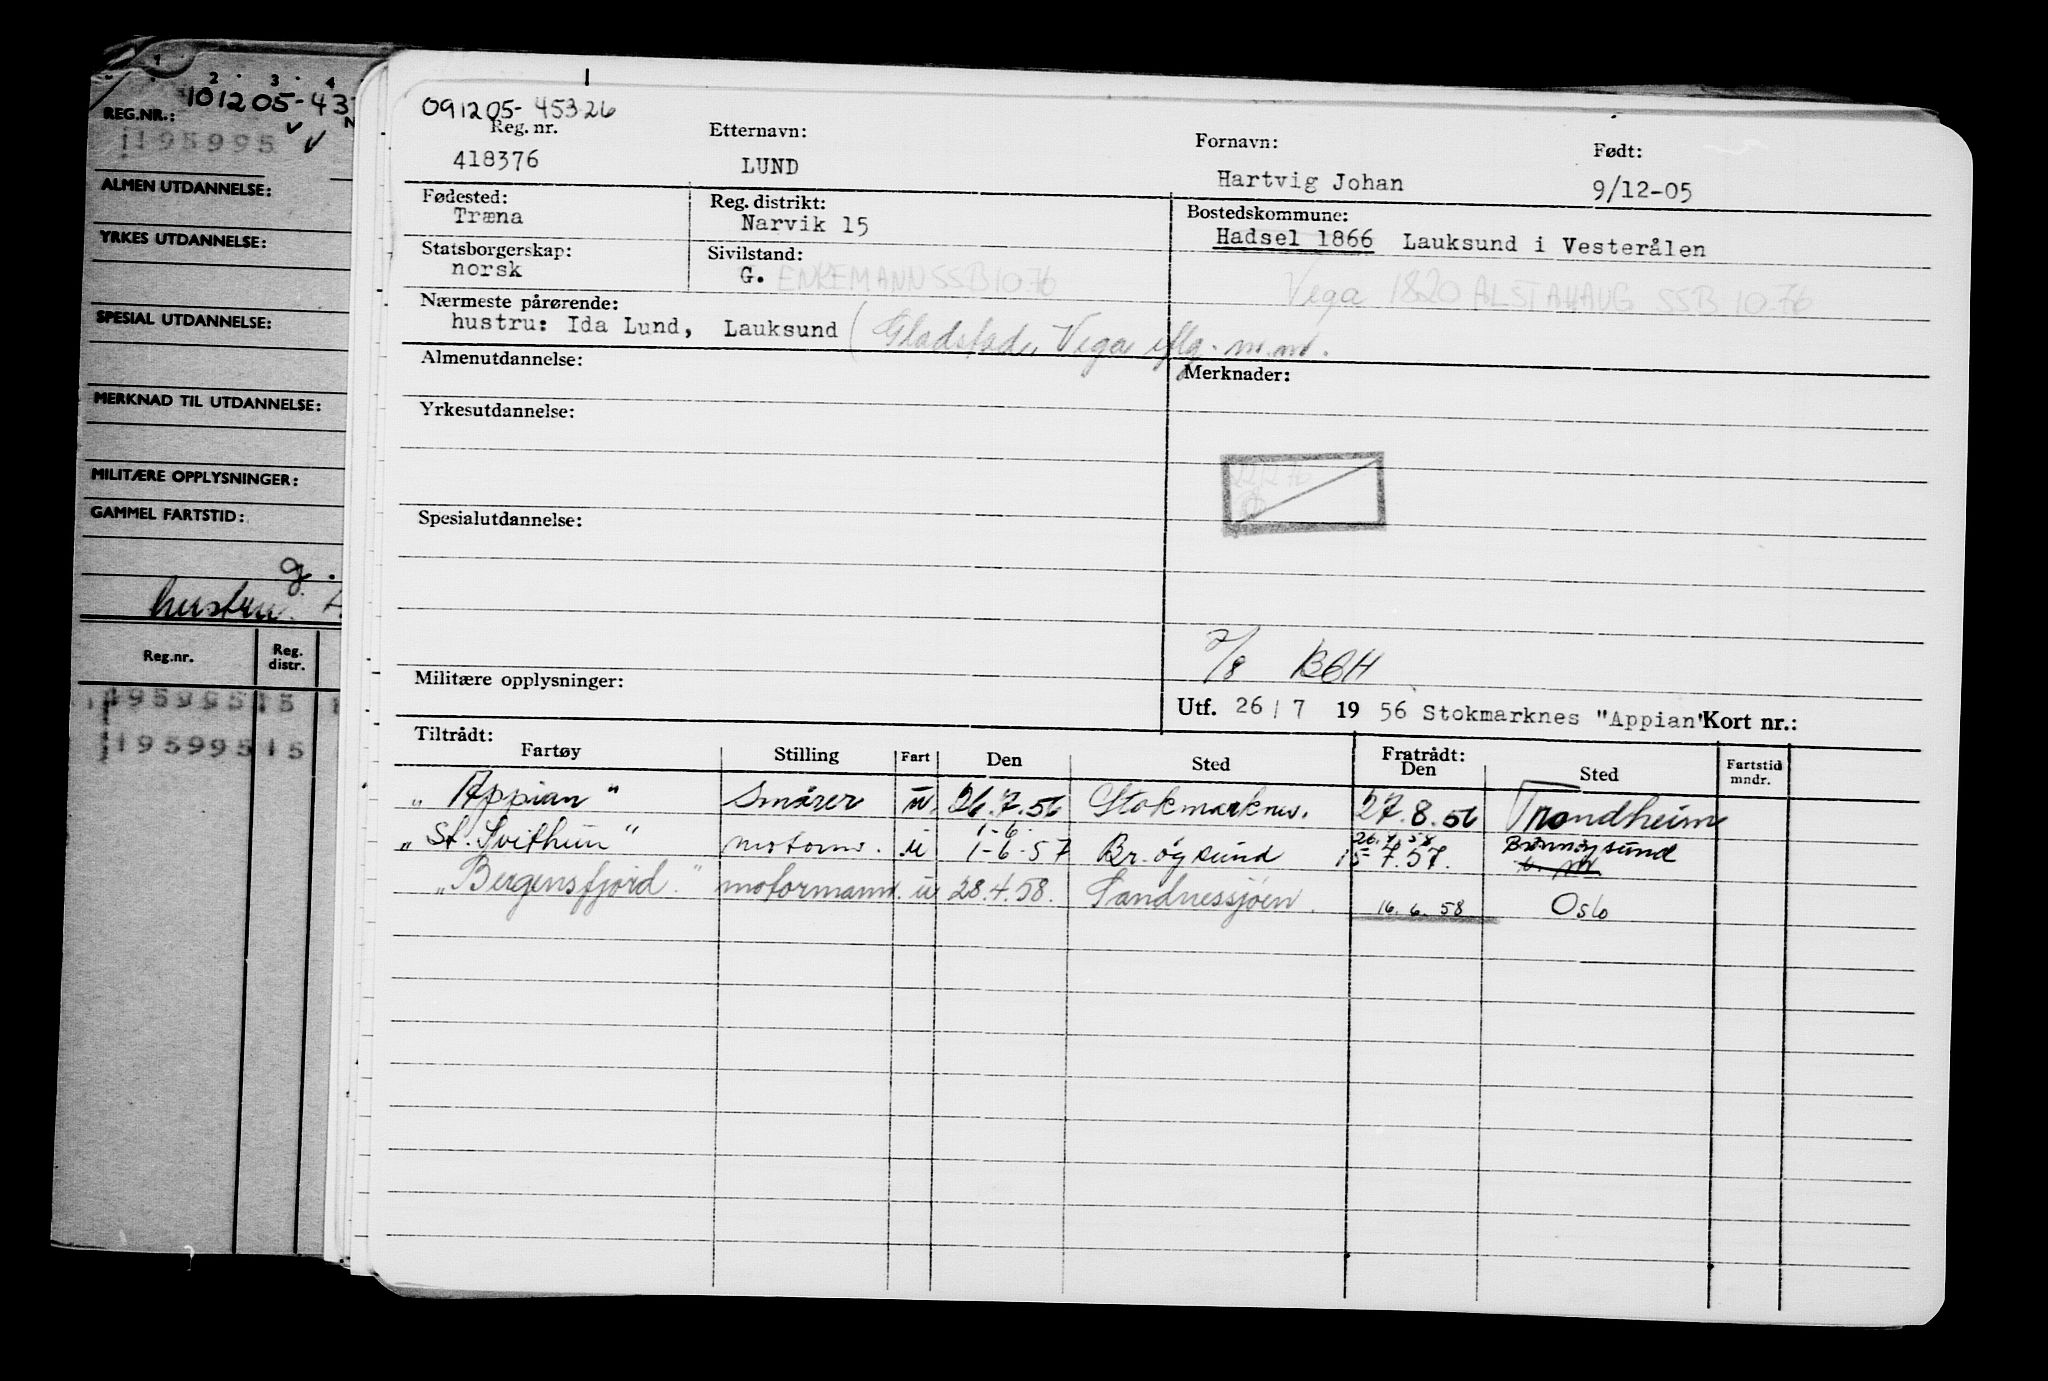 1
2 3 4
101205-43
REG.NR.:
195995
ALMEN UTDANNELSE:
YRKES UTDANNELSE:
SPESIAL UTDANNELSE:
MERKNAD TIL UTDANNELSE:
MILITÆRE OPPLYSNINGER:
GAMMEL FARTSTID:
g.
hustru:
Reg.nr. Reg. distr.
195995 15
195995 15
091205-45326
Reg. nr. Etternavn: Fornavn: Født:
418376 LUND Hartvig Johan 9/12-05
Fødested: Reg. distrikt: Bostedskommune:
Træna Narvik 15 Hadsel 1866 Lauksund i Vesterålen
Statsborgerskap: Sivilstand:
norsk G. ENKEMANN SSB 10.76 Vega 1820 ALSTAHAUG SSB 10.76
Nærmeste pårørende:
hustru: Ida Lund, Lauksund (Gladstad, Vega iflg. m.m.
Almenutdannelse: Merknader:
Yrkesutdannelse:
22/12 76
Spesialutdannelse:
7/8 BCH
Militære opplysninger:
Utf. 26/7 1956 Stokmarknes "Appian" Kort nr.:
Tiltrådt: Fratrådt:
Fartøy Stilling Fart Den Sted Den Sted Fartstid mndr.
„Appian" Smører u 26.7.56 Stokmarknes. 27.8.56 Trondheim
1-6. 26.4.58
„St. Svithun" motorm. u 1-6-57 Br.øysund 15-7.57. Brønnøysund
„Bergensfjord." motormann. u 28.4.58. Sandnessjøen. 16.6.58 Oslo